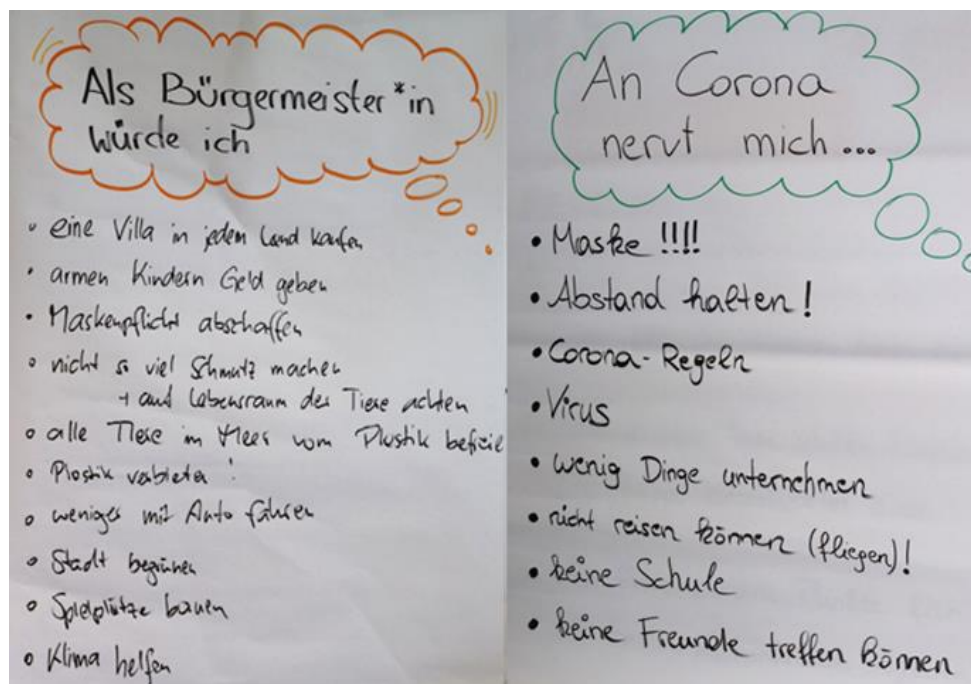 Als Bürgermeister*in
würde ich
• eine Villa in jedem Land kaufen
• armen Kindern Geld geben
• Maskenpflicht abschaffen
• nicht so viel Schmutz machen
+ auf Lebensraum der Tiere achten
• alle Tiere im Meer vom Plastik befreie
• Plastik verbieten!
• weniger mit Auto fahren
• Stadt begrünen
• Spielplätze bauen
• Klima helfen
An Corona
nervt mich...
• Maske !!!!
• Abstand halten!
• Corona-Regeln
• Virus
• wenig Dinge unternehmen
• nicht reisen können (fliegen)!
• keine Schule
• keine Freunde treffen können